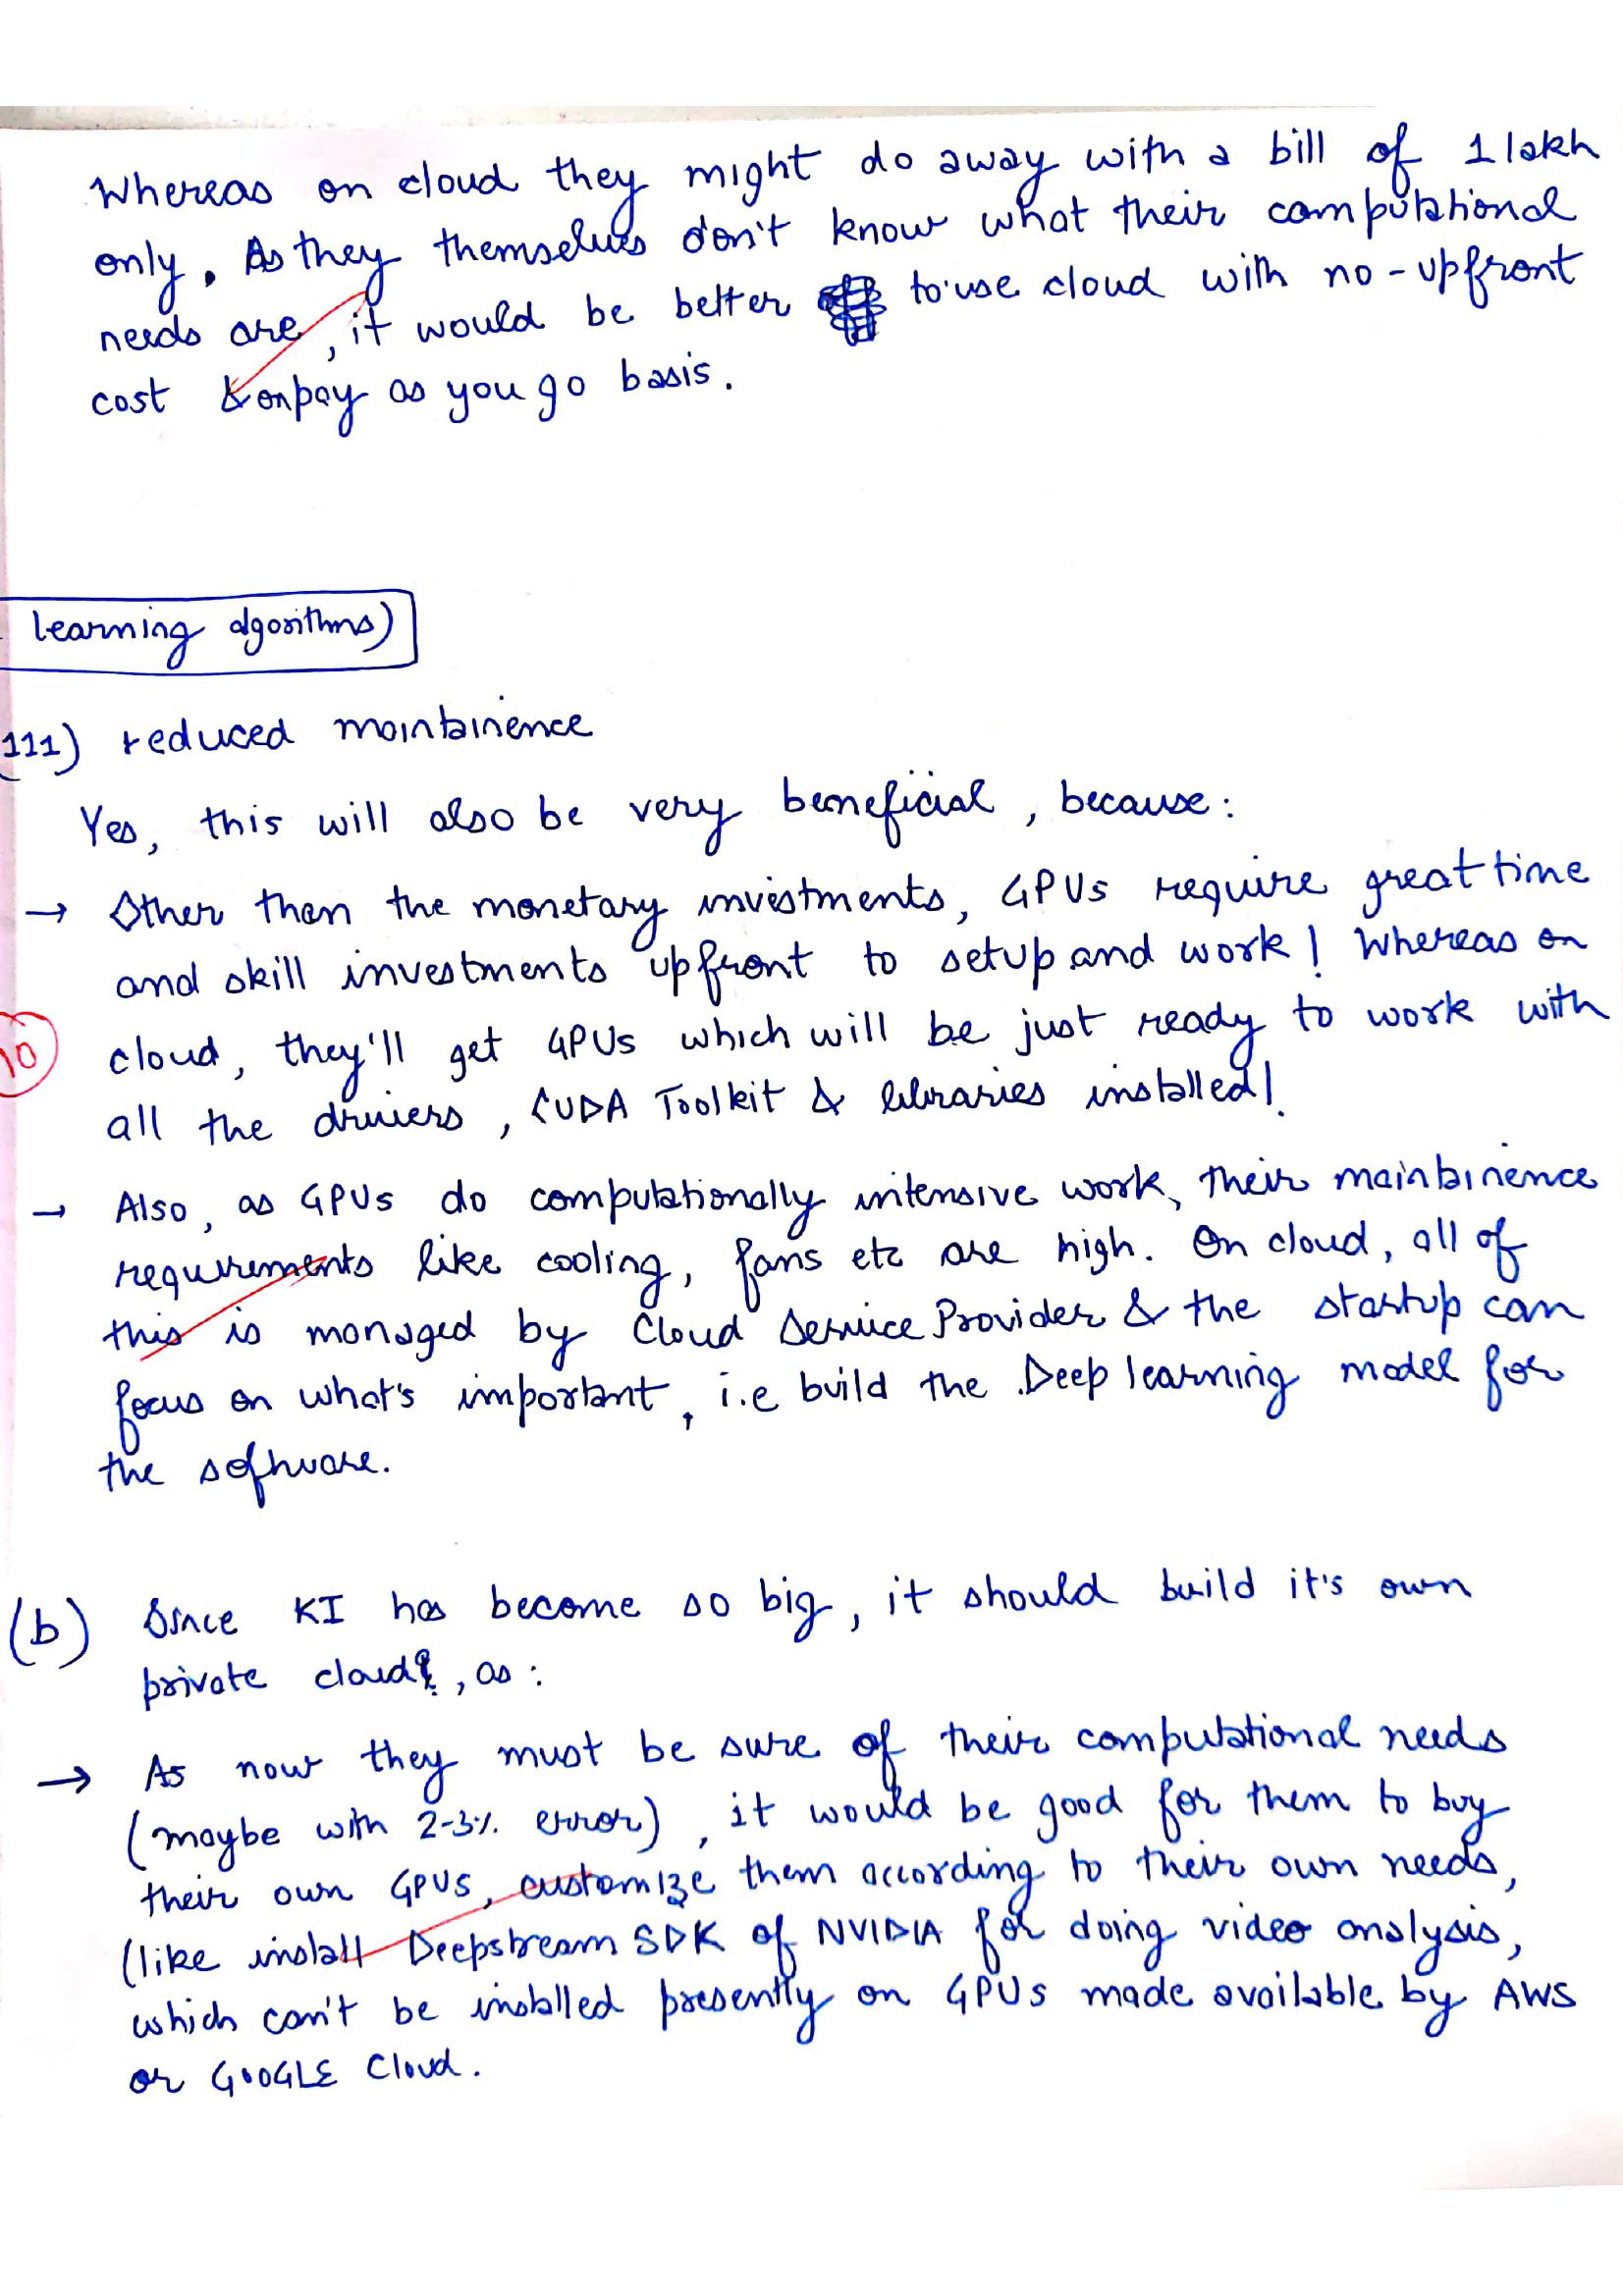 Whereas on cloud they might do away with a bill of 1 lakh
only. As they themselves don't know what their computational
needs are, it would be better to use cloud with no-upfront
cost & on pay as you go basis.
learning algorithms)
(111) reduced maintainence
Yes, this will also be very beneficial, because:
→ Other than the monetary investments, GPUs require great time
and skill investments upfront to setup and work! Whereas on
10
cloud, they'll get GPUs which will be just ready to work with
all the drivers, CUDA Toolkit & libraries installed!
→ Also, as GPUs do computationally intensive work, their maintainence
requirements like cooling, fans etc are high. On cloud, all of
this is managed by Cloud Service Provider & the startup can
focus on what's important, i.e build the Deep learning model for
the software.
(b) Since KI has become so big, it should build it's own
private cloud, as:
→ As now they must be sure of their computational needs
(maybe with 2-3% error), it would be good for them to buy
their own GPUs, customize them according to their own needs,
(like install Deepstream SDK of NVIDIA for doing video analysis,
which can't be installed presently on GPUs made available by AWS
or GOOGLE Cloud.